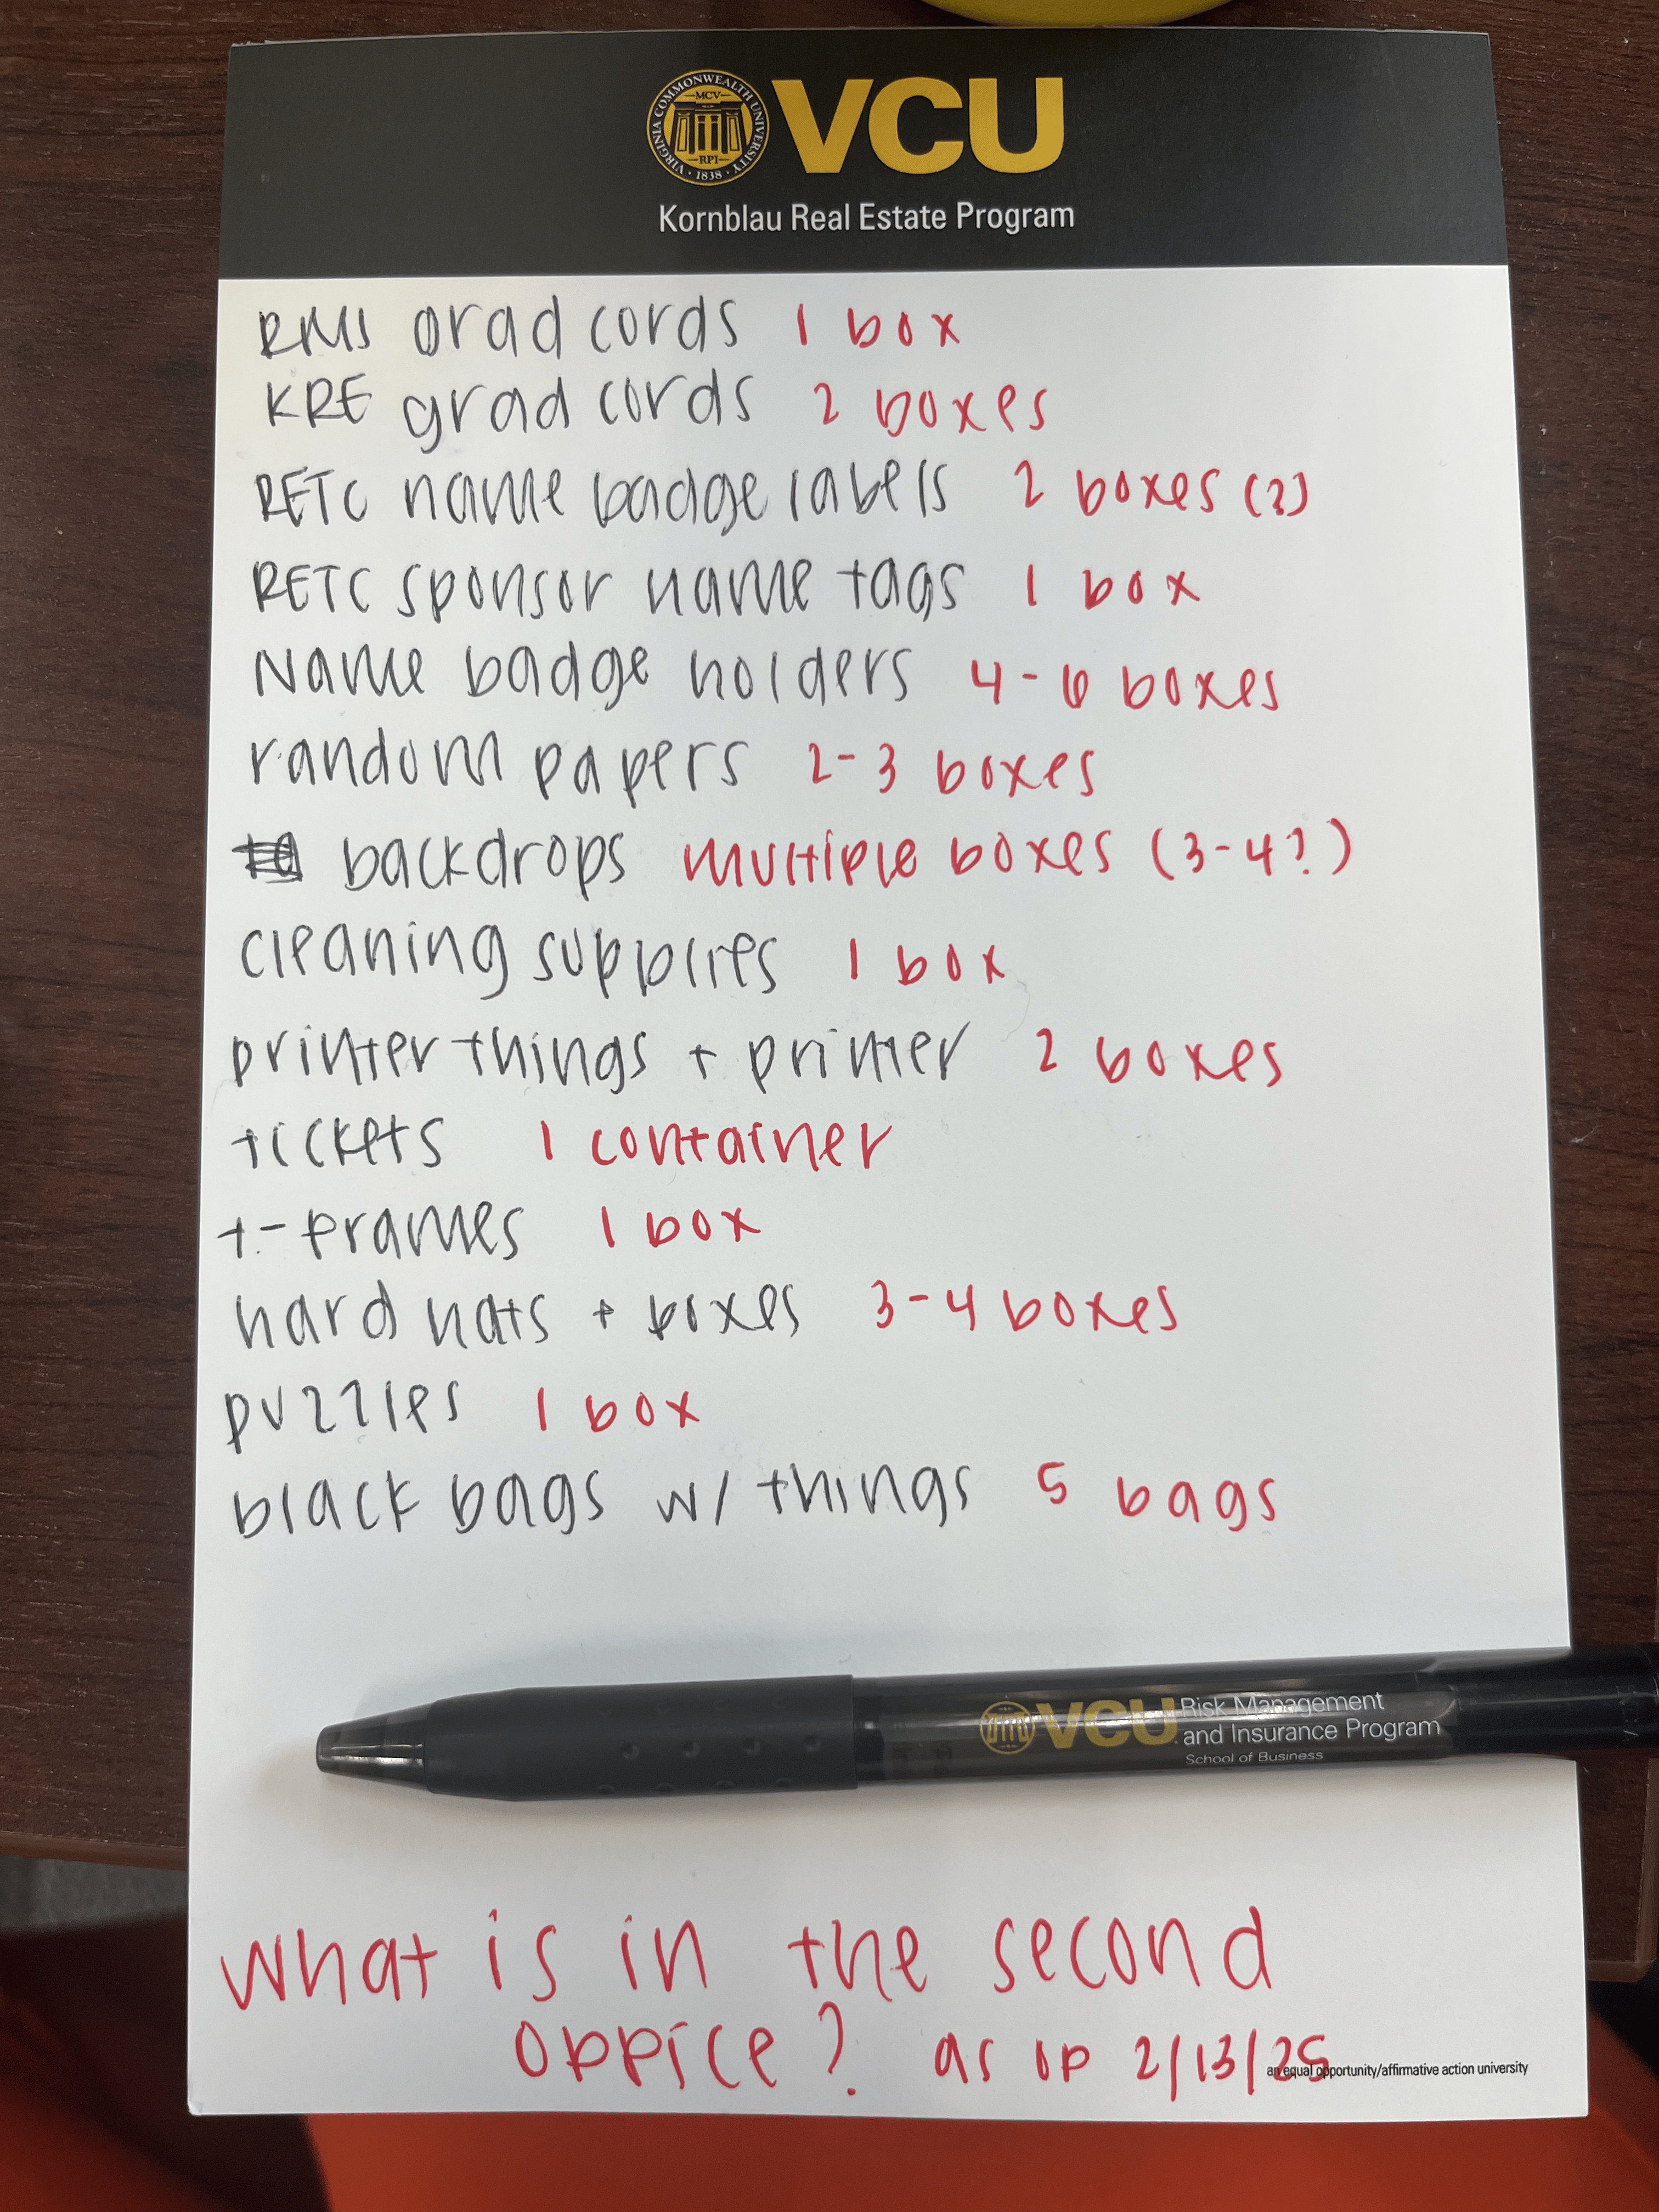 VIRGINIA COMMONWEALTH UNIVERSITY
MCV
RPI
1838
VCU
Kornblau Real Estate Program
RMI grad cords 1 box
KRE grad cords 2 boxes
RETC name badge labels 2 boxes (?)
RETC sponsor name tags 1 box
Name badge holders 4-6 boxes
random papers 2-3 boxes
backdrops multiple boxes (3-4?)
cleaning supplies 1 box
printer things + printer 2 boxes
tickets 1 container
t-frames 1 box
hard hats + boxes 3-4 boxes
puzzles 1 box
black bags w/ things 5 bags
VCU Risk Management
and Insurance Program
School of Business
what is in the second
office? as of 2/13/25
an equal opportunity/affirmative action university